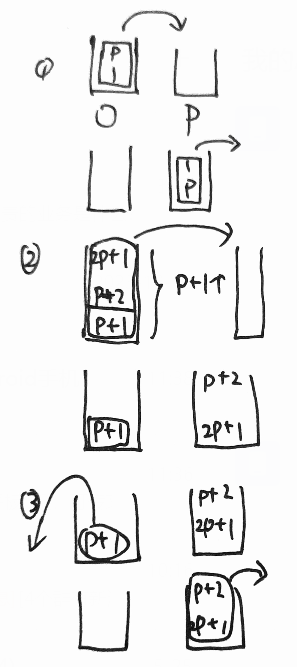 ①
P
1
O P
1
P
②
2p+1
p+2
p+1
p+1↑
p+1
p+2
2p+1
③
p+1
p+2
2p+1
p+2
2p+1